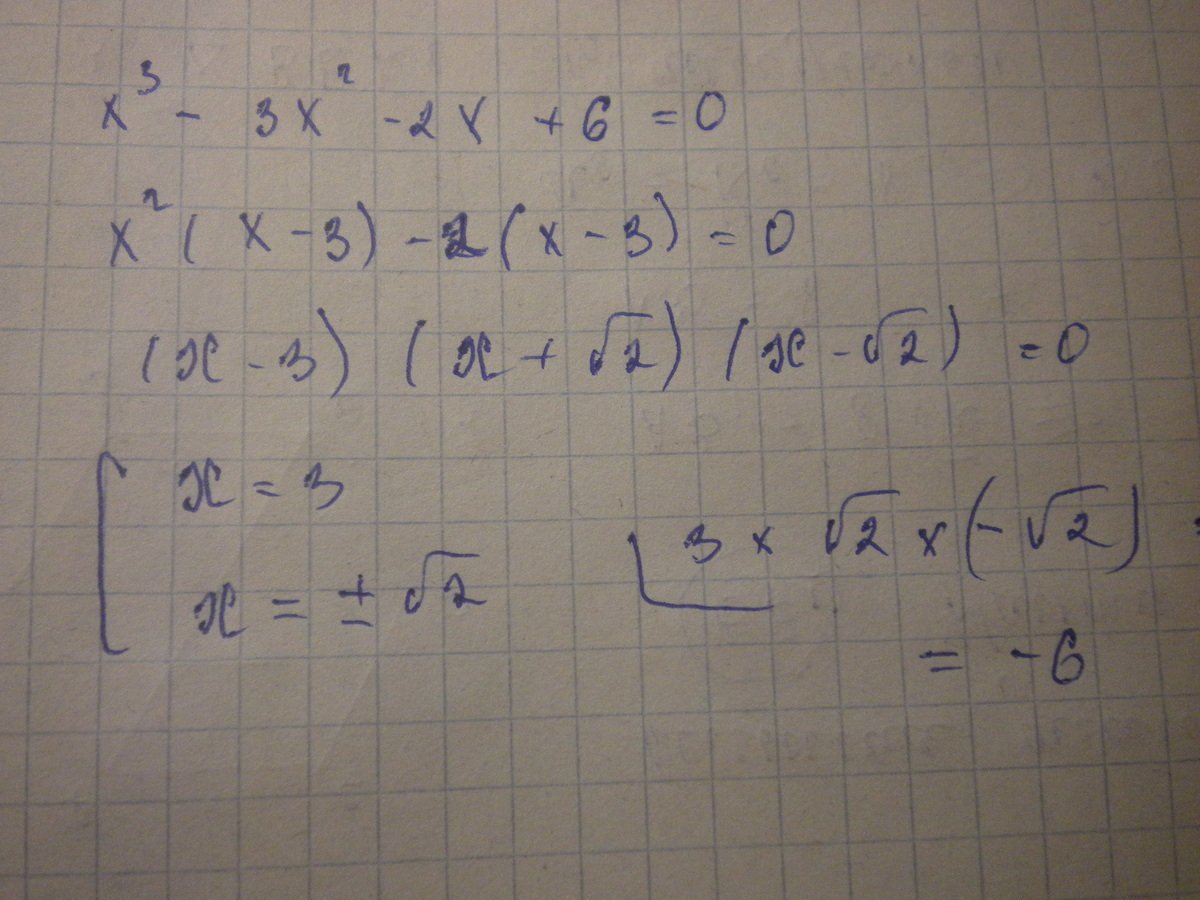 x³ - 3x² - 2x + 6 = 0
x² (x - 3) - 2 (x - 3) = 0
(x - 3) (x + √2) (x - √2) = 0
x = 3
x = ± √2
3 × √2 × (-√2) =
= -6